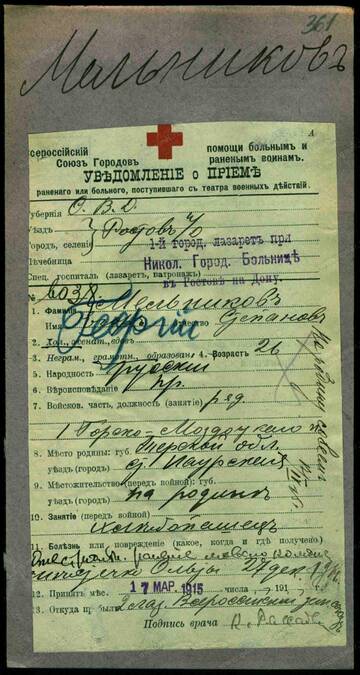 361
Мельниковъ
Всероссійскій
Союзъ Городовъ
помощи больнымъ и
раненымъ воинамъ.
УВѢДОМЛЕНІЕ о ПРІЕМѢ
раненаго или больного, поступившаго съ театра военныхъ дѣйствій.
Губернія О. В. Д.
Уѣздъ Ростовъ н/Д
Городъ, селеніе
1-й город. лазаретъ при
Лечебница
Никол. Город. Больницѣ
въ Ростовѣ на Дону
Спец. госпиталь (лазаретъ, патронажъ)
№ 6038
1. Фамилія Мельниковъ
Имя Георгій Отчество Степанов
2. Хол., женат., вдов.
3. Неграм., грамотн., образован. 4. Возрастъ 26
5. Народность Русскій
6. Вѣроисповѣданіе пр.
7. Войсков. часть, должность (занятіе) ряд.
1 Горско-Моздокскаго п.
8. Мѣсто родины: губ. Терской обл.
уѣздъ (городъ) ст. Наурская
9. Мѣстожительство (передъ войной): губ.
уѣздъ (городъ) на родинѣ
10. Занятіе (передъ войной)
Хлѣбопашецъ
11. Болѣзнь или поврежденіе (какое, когда и гдѣ получено)
12. Принятъ мѣс. 17 МАР. 1915 числа 191
13. Откуда прибылъ 2 лаз. Всероссійскій
Подпись врача